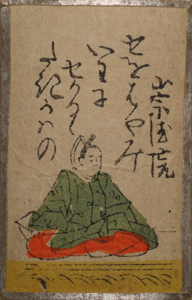 崇徳院
せをはやみ
いわに
せかるゝ
たき川の